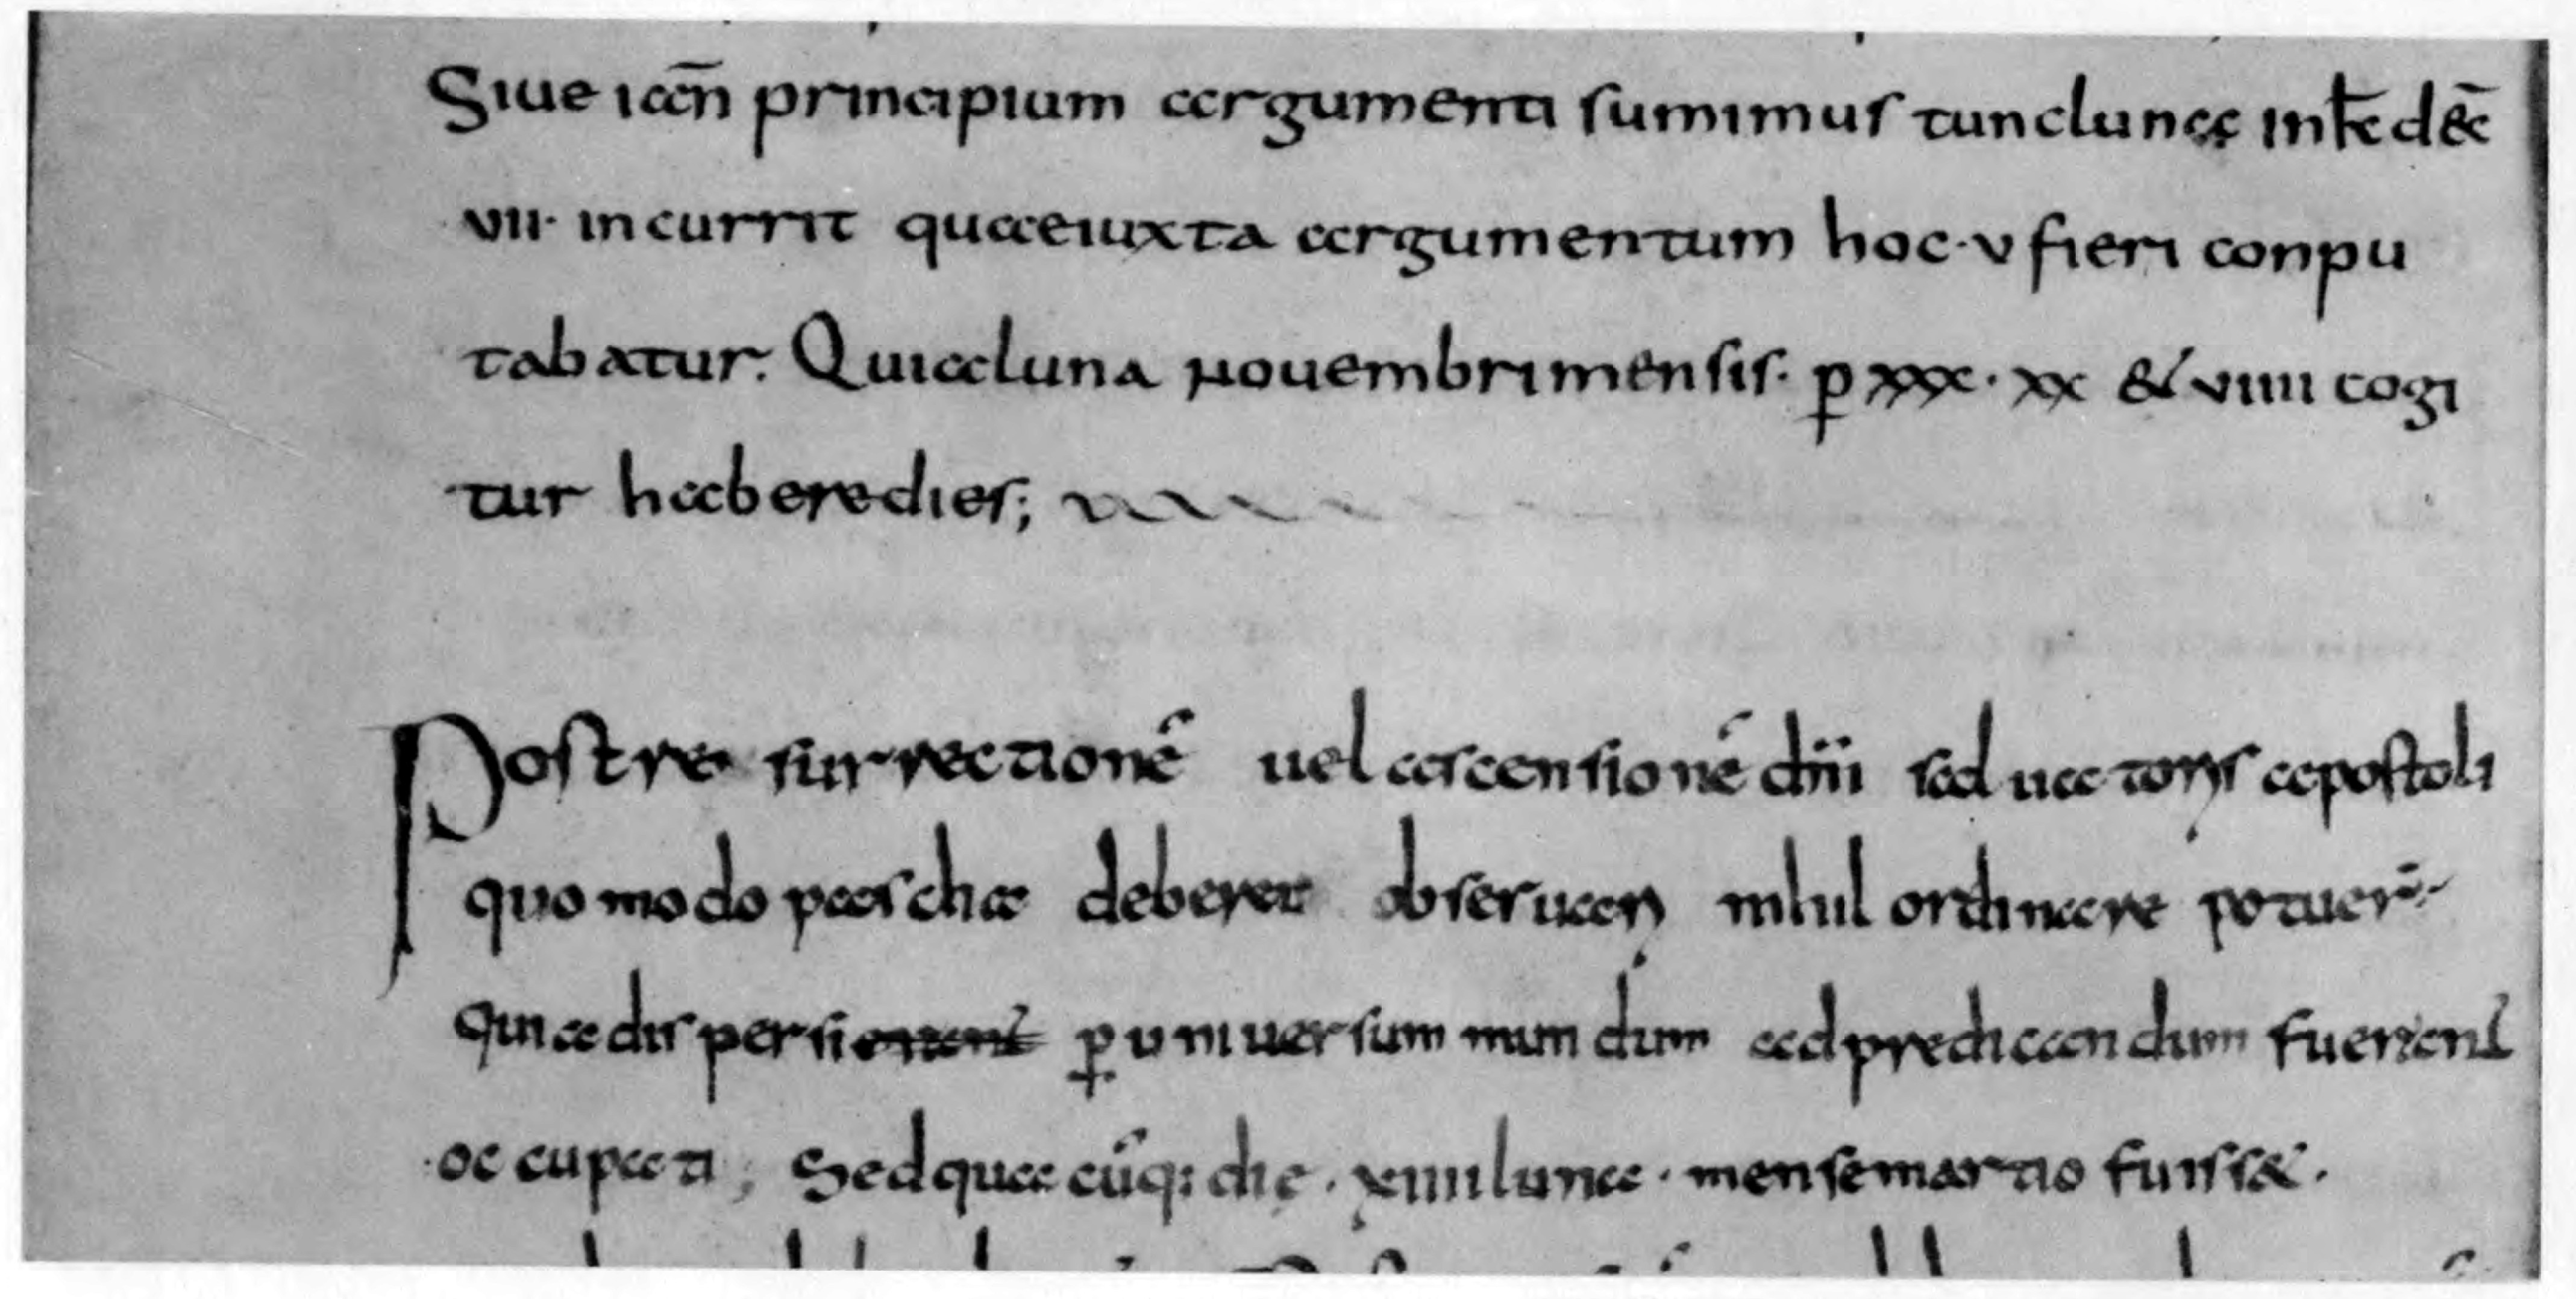 Siue ian̄ principium argumenti sumimus tunc lunę in kł dec̄
vii· incurrit quae iuxta argumentum hoc · v fieri conpu
tabatur. Quia luna nouembri mensis · p̱ xxx · xx & viiii cogi
tur habere dies;
Post resurrectionē uel ascensionē dn̄i saluatoris apostoli
quomodo pascha deberet obseruari nihil ordinare potuer̄
Quia dispersi p̱ uniuersum mundum ad predicandum fuerant
occupati; Sed quacūq; die · xiiii luna · mense martio fuiss&·